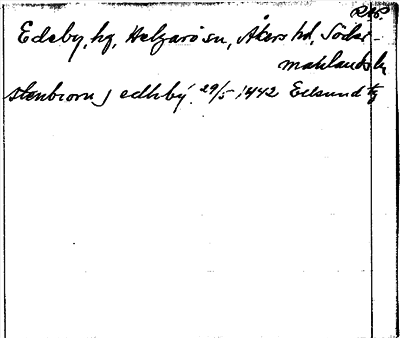 Edeby, hg, Helgarö sn, Åkers hd, Söder-
manlands l.
stenbiorn j edhby 29/5 1442 Edsund